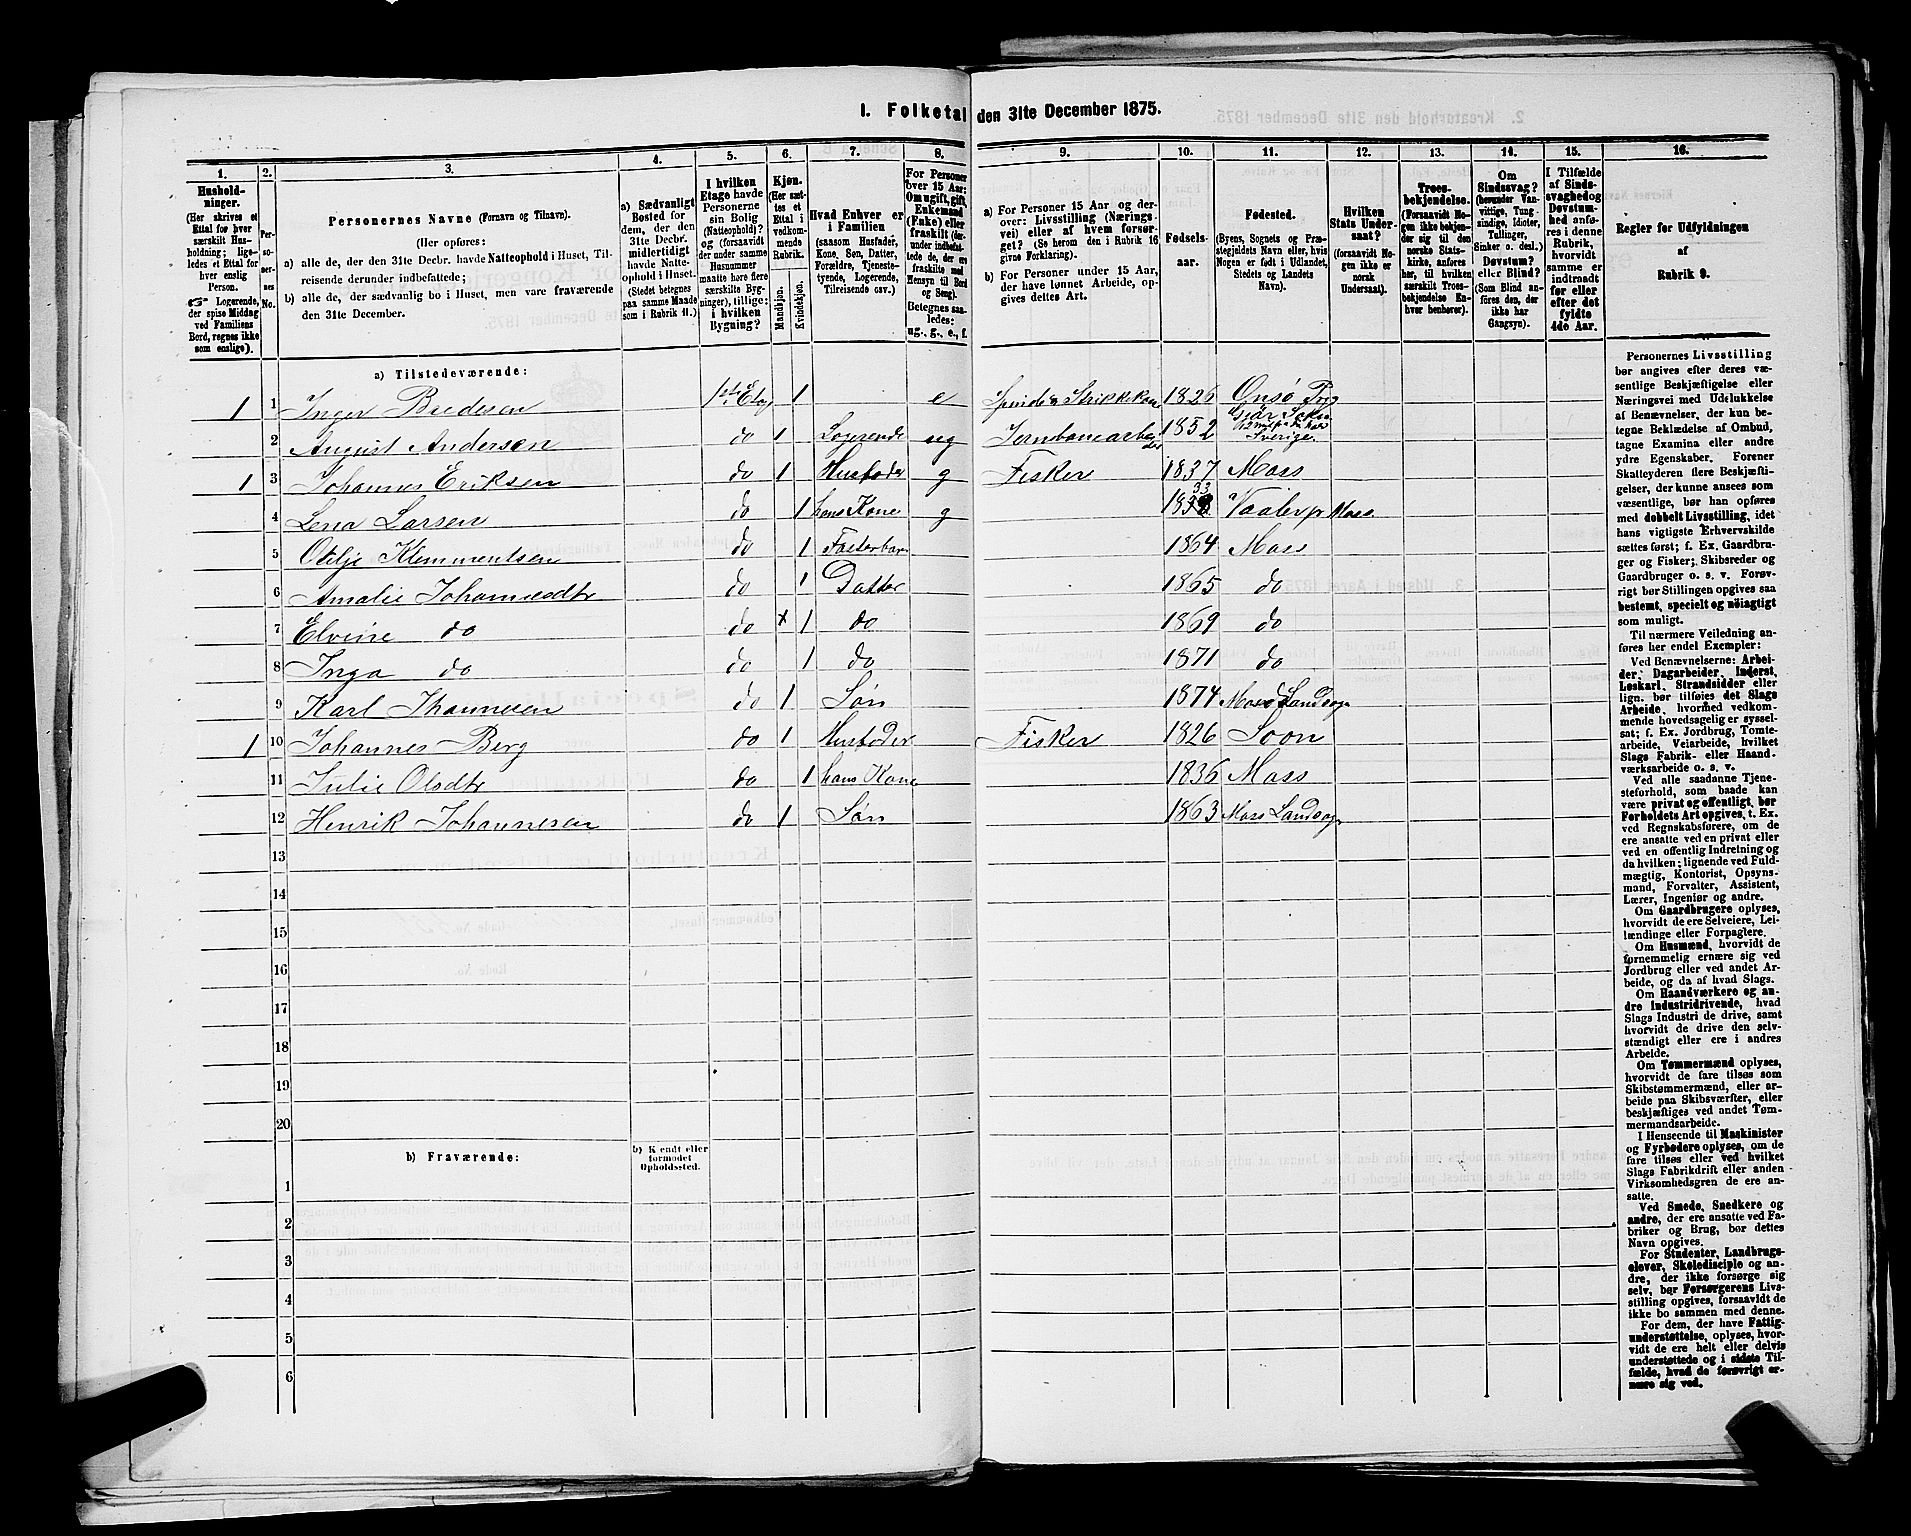 1. Folketal den 31te December 1875.
1. 2. 3. 4. 5. 6. 7. 8. 9. 10. 11. 12. 13. 14. 15. 16.
Husholdninger.
(Her skrives et
Ettal for hver
særskilt Husholdning; ligeledes
et Ettal for
hver enslig
Person.
☞ Logerende,
der spise Middag
ved Familiens
Bord, regnes ikke
som enslige).
Personernes No.
Personernes Navne (Fornavn og Tilnavn).
(Her opføres:
a) alle de, der den 31te Decbr. havde Natteophold i Huset, Tilreisende derunder indbefattede;
b) alle de, der sædvanlig bo i Huset, men vare fraværende
den 31te December.
a) Sædvanligt
Bosted for
dem, der den
31te Decbr.
midlertidigt
havde Natteophold i Huset.
(Stedet betegnes
paa samme Maade
som i Rubrik 11.)
I hvilken
Etage havde
Personerne
sin Bolig
(Natteophold)?
og (forsaavidt
der under samme
Husnummer
maatte høre flere
særskilte Bygninger), tillige:
i hvilken
Bygning?
Kjøn.
(Her sættes et
Ettal i
vedkommende
Rubrik.
Mandkjøn.
Kvindekjøn.
Hvad Enhver er
i Familien
(saasom Husfader,
Kone, Søn, Datter,
Forældre, Tjenestetyende, Logerende,
Tilreisende osv.)
For Personer
over 15 Aar:
Om ugift, gift,
Enkemand
(Enke) eller
fraskilt (derunder indbefattede de, der ere
fraskilte med
Hensyn til Bord
og Seng).
Betegnes saaledes:
ug., g., e., f.
a) For Personer 15 Aar og derover: Livsstilling (Næringsvei) eller af hvem forsørget? (Se herom den i Rubrik 16
givne Forklaring).
b) For Personer under 15 Aar,
der have lønnet Arbeide, opgives dettes Art.
Fødselsaar.
Fødested.
(Byens, Sognets og Præstegjeldets Navn eller, hvis
Nogen er født i Udlandet,
Stedets og Landets
Navn).
Hvilken
Stats Undersaat?
(forsaavidt Nogen ikke er
norsk
Undersaat).
Troesbekjendelse.
(Forsaavidt Nogen ikke bekjender sig til den
norske Statskirke, anføres
her, til hvilken
særskilt Troesbekjendelse Enhver henhører).
Om
Sindssvag?
(herunder Vanvittige, Tungsindige, Idioter,
Tullinger,
Sinker o. desl.)
Døvstum?
eller Blind?
(Som Blind anføres den, der
ikke har
Gangsyn).
I Tilfælde
af Sindssvaghed og
Døvstumhed anføres i denne
Rubrik,
hvorvidt
samme er
indtraadt
før eller
efter det
fyldte
4de Aar.
Regler for Udfyldningen
af
Rubrik 9.
a) Tilstedeværende:
1 1 Inger Bredesen 1ste Etag 1 e 1826 Onsø
2 August Andersen do 1 Logerende ug 1852 Sverige
1 3 Johannes Eriksen do 1 Husfader g Fisker 1837 Moss
4 Lena Larsen do 1 hans Kone g Vaaler pr Moss.
5 Otelje Klemmentsen do 1 1864 Moss
6 Amalie Johannesdtr do 1 Datter 1865 do
7 Elvine do do x 1 do 1869 do
8 Inga do do 1 do 1871 do
9 Karl Jhannesen do 1 Søn 1874 Moss Landsogn
1 10 Johannes Berg do 1 Husfader Fisker 1826 Soon
11 Julie Olsdtr do 1 hans Kone 1836 Moss
12 Henrik Johannesen do 1 Søn 1863 Moss Landsogn
13
14
15
16
17
18
19
20
b) Fraværende:
b) Kjendt eller
formodet
Opholdssted.
1
2
3
4
5
6
Personernes Livsstilling
bør angives efter deres væsentlige Beskjæftigelse eller
Næringsvei med Udelukkelse
af Benævnelser, der kun betegne Beklædelse af Ombud,
tagne Examina eller andre
ydre Egenskaber. Forener
Skatteyderen flere Beskjæftigelser, der kunne ansees som
væsentlige, bør han opføres
med dobbelt Livsstilling, idet
hans vigtigste Erhvervskilde
sættes først; f. Ex. Gaardbruger og Fisker; Skibsreder og
Gaardbruger o. s. v. Forøvrigt bør Stillingen opgives saa
bestemt, specielt og nöiagtigt
som muligt.
Til nærmere Veiledning anføres her endel Exempler:
Ved Benævnelserne: Arbeider, Dagarbeider, Inderst,
Løskarl, Strandsidder eller
lign. bør tilføies det Slags
Arbeide, hvormed vedkommende hovedsagelig er sysselsat; f. Ex. Jordbrug, Tomtearbeide, Veiarbeide, hvilket
Slags Fabrik- eller Haandværksarbeide o. s. v.
Ved alle saadanne Tjenesteforhold, som baade kan
være privat og offentligt, bør
Forholdets Art opgives, t. Ex.
ved Regnskabsførere, om de
ere ansatte ved en privat eller
ved en offentlig Indretning og
da hvilken; lignende ved Fuldmægtig, Kontorist, Opsynsmand, Forvalter, Assistent,
Lærer, Ingeniør og andre.
Om Gaardbrugere oplyses,
hvorvidt de ere Selveiere, Leilændinge eller Forpagtere.
Om Husmænd, hvorvidt de
fornemmelig ernære sig ved
Jordbrug eller ved andet Arbeide, og da af hvad Slags.
Om Haandværkere og andre Industridrivende, hvad
Slags Industri de drive, samt
hvorvidt de drive den selvstændigt eller ere i andres
Arbeide.
Om Tømmermænd oplyses,
hvorvidt de fare tilsøs som
Skibstømmermænd, eller arbeide paa Skibsværfter, eller
beskjæftiges ved andet Tømmermandsarbeide.
I Henseende til Maskinister
og Fyrbødere oplyses, om de
fare tilsøs eller ved hvilket
Slags Fabrikdrift eller anden
Virksomhedsgren de ere ansatte.
Ved Smede, Snedkere og
andre, der ere ansatte ved Fabriker og Brug, bør dettes
Navn opgives.
For Studenter, Landbrugselever, Skoledisciple og andre, der ikke forsørge sig
selv, bør Forsørgerens Livsstilling opgives, forsaavidt de
ikke bo sammen med denne.
For dem, der have Fattigunderstøttelse, oplyses, hvorvidt de ere helt eller delvis
understøttede og i sidste Tilfælde, hvad de forøvrigt ernære sig ved.